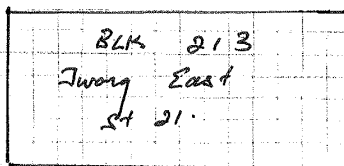 BLK 213
Jurong East
St 21.